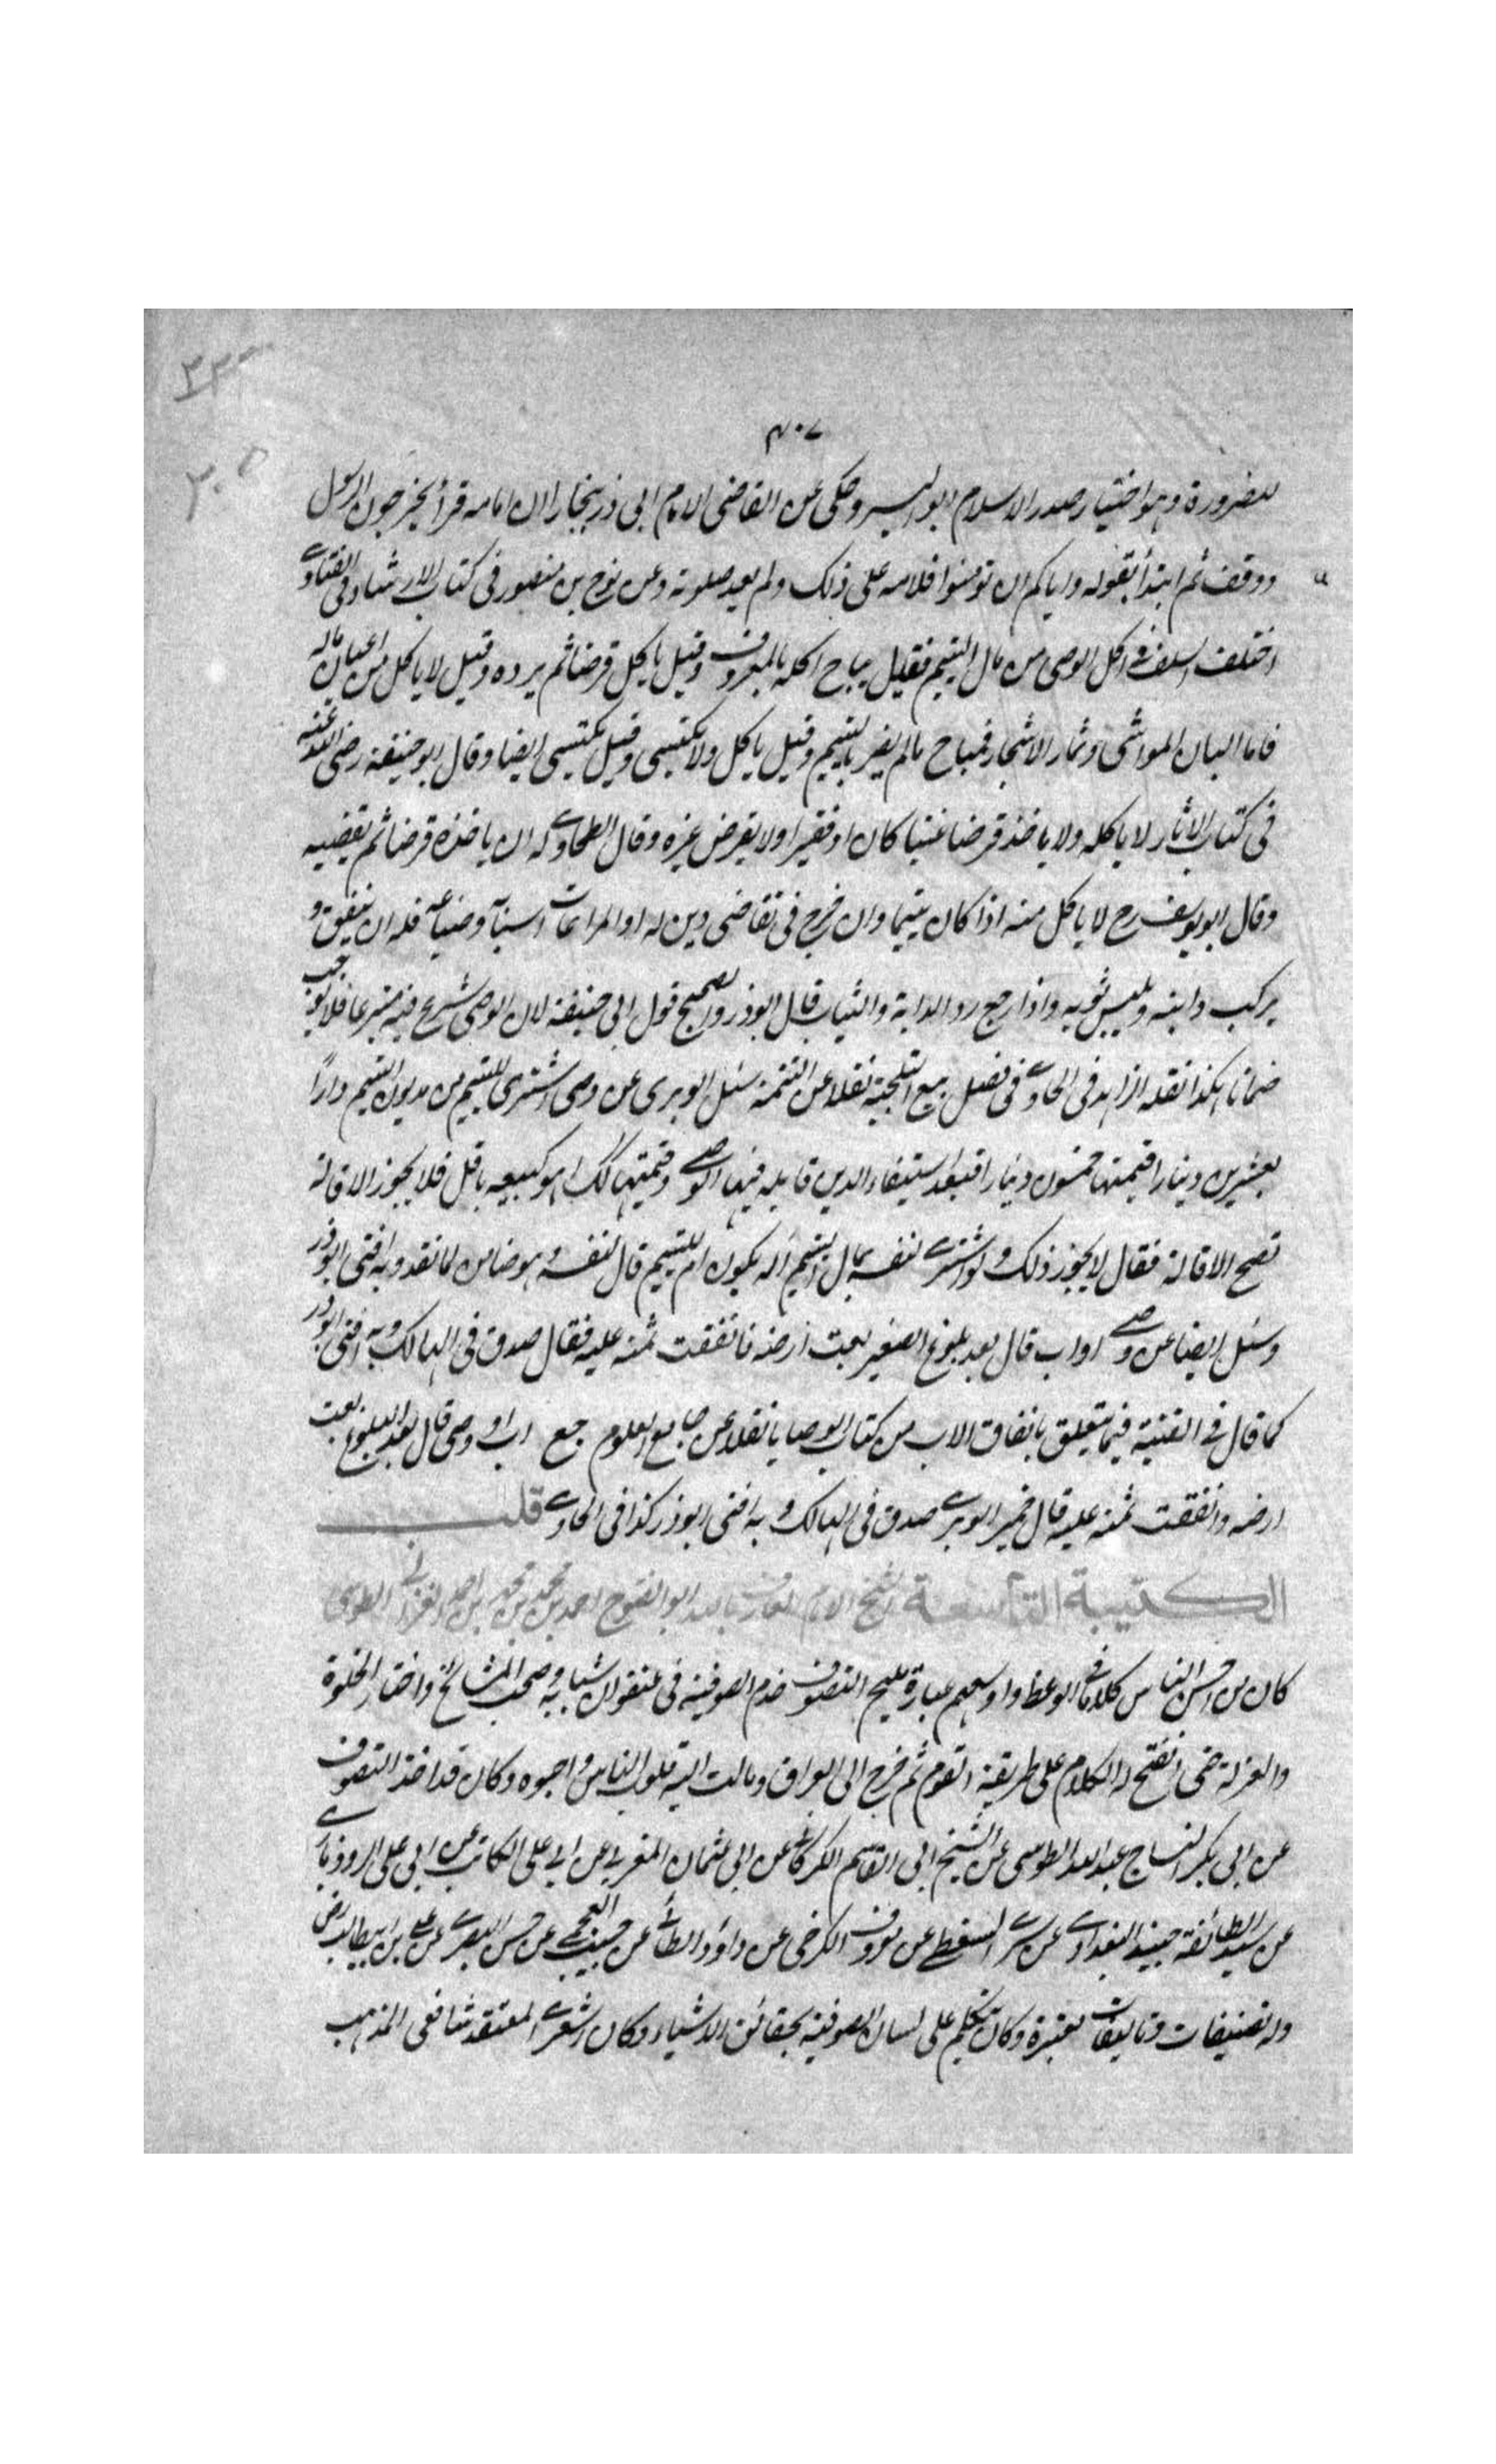 ٢٢٠
٤٠٧
٢٠٥
للضرورة وهو اختيار صدر الاسلام ابو اليسر وحكى عن القاضى الامام ابى ذر ببخارا ان امامه قرأ يخرجون الرسول
ووقف ثم ابتدأ بقوله واياكم ان تومنوا فلامه على ذلك ولم يعد صلوته وعن نوح بن منصور فى كتاب الارشاد وفى الفتاوى
اختلف السلف فى اكل الوصى من مال اليتيم فقيل يباح اكله بالمعروف وقيل ياكل قرضا ثم يرده وقيل لا ياكل من اعيان ماله
فاما البان المواشى وثمار الاشجار فمباح ما لم يضر باليتيم وقيل ياكل ولا يكتسى وقيل يكتسى ايضا وقال ابو حنيفة رضى الله عنه
فى كتاب الاثار لا ياكله ولا ياخذ قرضا غنيا كان او فقيرا ولا يقرض غيره وقال الطحاوى له ان ياخذه قرضا ثم يقضيه
وقال ابو يوسف رح لا ياكل منه اذا كان يتيما وان خرج فى تقاضى دين له او المراعات اسبابه وضياعه فله ان ينفق و
يركب دابته ويلبس ثوبه واذا رجع رد الدابة والثياب قال ابو ذر والصحيح قول ابى حنيفة لان الوصى شرع فيه متبرعا فلا يوجب
ضمانا هكذا نقله الزاهد فى الحاوى فى فصل بيع التلجية نقلا عن التتمة سئل الوبرى عن وصى اشترى لليتيم من مديون اليتيم دارًا
بعشرين دينارا قيمتها خمسون دينارا فبعد استيفاء الدين قايله فيها الوصى وقيمتها كذلك اهو كبيعه باقل فلا يجوز الاقالة
تصح الاقالة فقال لا يجوز ذلك ولو اشترى لنفسه بمال اليتيم أله يكون ام لليتيم قال لنفسه وهو ضامن لما نقد وبه افتى ابو ذر
وسئل ايضا عن وصى او اب قال بعد بلوغ الصغير بعت ارضه فانفقت ثمنه عليه فقال صدق فى الهالك وبه افتى ابو ذر
كما قال فى القنية فيما يتعلق بانفاق الاب من كتاب الوصايا نقلا عن جامع العلوم جع اب او وصى قال بعد البلوغ بعت
ارضه وانفقت ثمنه عليه قال خمير الوبرى صدق فى الهالك وبه افتى ابو ذر كذا فى الحاوى قلب
الكتيبة التاسعة الشيخ الامام العارف بالله ابو الفتوح احمد بن محمد بن محمد بن احمد الغزالى الطوسى
كان من احسن الناس كلاما فى الوعظ واوسعهم عبارة مليح التصوف خدم الصوفية فى عنفوان شبابه وصحب المشائخ واختار الخلوة
والعزلة حتى انفتح له الكلام على طريقة القوم ثم خرج الى العراق ومالت اليه قلوب الناس واحبوه وكان قد اخذ التصوف
عن ابى بكر النساج عبد الله الطوسى عن الشيخ ابى القاسم الكركانى عن ابى عثمان المغربى عن ابى على الكاتب عن ابى على الرودبارى
عن سيد الطائفة جنيد البغدادى عن سرى السقطى عن معروف الكرخى عن داؤد الطائى عن حبيب العجمى عن حسن البصرى عن على بن ابيطالب رض
وله تصنيفات وتاليفات معتبرة وكان يتكلم على لسان الصوفية بحقائق الاشياء وكان اشعرى المعتقد شافعى المذهب